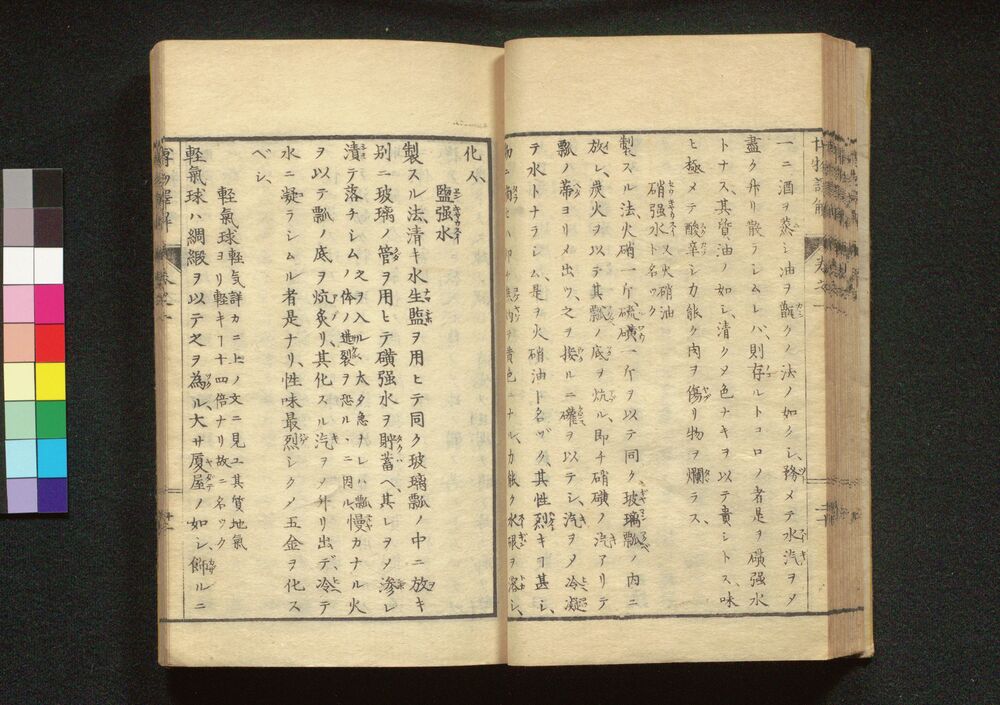 一ニ酒ヲ蒸シ油ヲ釃クノ法ノ如クシ、務メテ水汽ヲメ
盡ク升リ散ラシムレバ、則存ルトコロノ者是ヲ礦强水
トナス、其質油ノ如シ、清クメ色ナキヲ以テ貴シトス、味
ヒ極メテ酸辛シカ能ク肉ヲ傷リ物ヲ爛ラス、
硝强水 又火硝油ト名ック
製スル法、火硝一斤硫礦一斤ヲ以テ同ク玻璃瓢ノ内ニ
放レ、炭火ヲ以テ其瓢ノ底ヲ炕ル、即チ硝礦ノ汽アリテ
瓢ノ蒂ヨリメ出ツ、之ヲ接ルニ罐ヲ以テシ、汽ヲメ冷凝
テ水トナラシム、是ヲ火硝油ト名ヅク、其性烈キヿ甚シ、
黄色ニナル、力能ク水銀ヲ溶シ、
化ス、
鹽强水
製スル法、清キ水生鹽ヲ用ヒテ同ク玻璃瓢ノ中ニ放キ
别ニ玻璃ノ管ヲ用ヒテ礦强水ヲ貯蓄ヘ、其レヲメ滲レ
漬テ落チシム、之ヲ入ル、太タ急ヲレハ瓢ノ体ノ迸裂ヲ恐ル、ニ因ル、慢カナル火
ヲ以テ瓢ノ底ヲ炕炙リ、其化スル汽ヲメ外リ出デ、冷テ
水ニ凝ラシムル者是ナリ、性味最烈シクメ五金ヲ化ス
ベシ、
軽氣球 軽気詳カニ上ノ文ニ見ユ其質地氣ヨリ軽キヿ十四倍ナリ故ニ名ック
軽氣球ハ綢緞ヲ以テ之ヲ為ル、大サ厦屋ノ如シ、飾ルニ